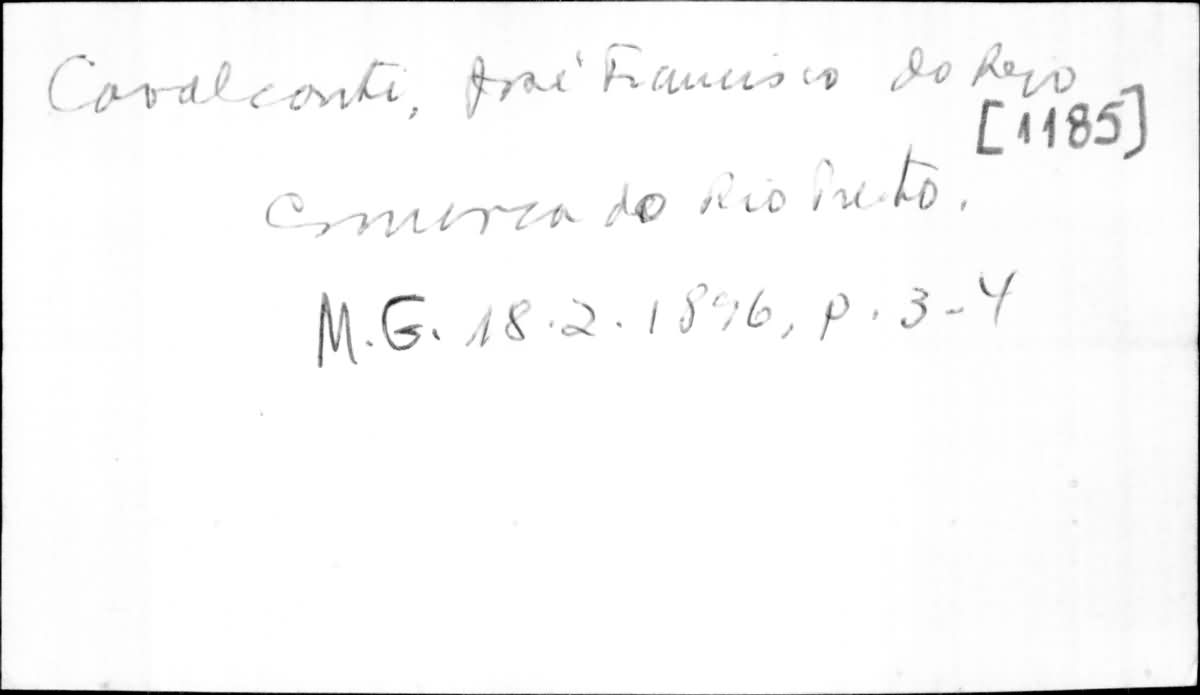 Cavalcanti, José Francisco do Rego
[1185]
Comarca do Rio Preto.
M.G. 18.2.1896, p. 3-4